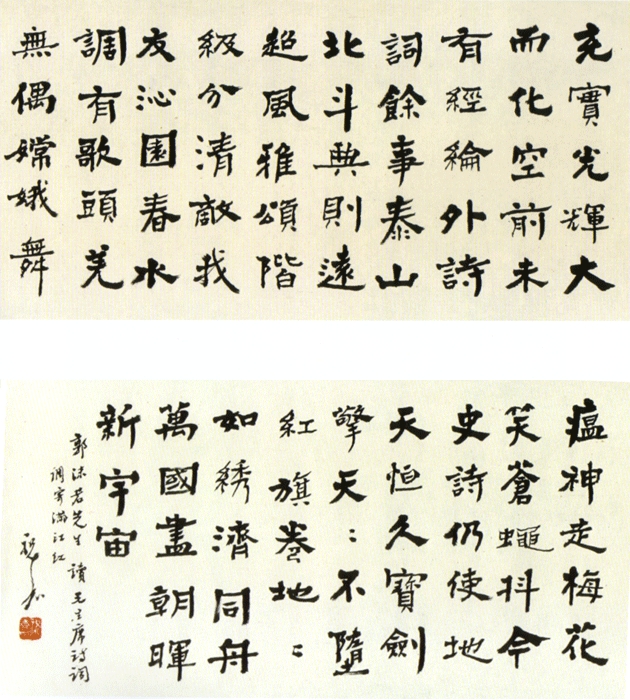 充實光輝大
而化空前未
有經綸外詩
詞餘事泰山
北斗典則遠
超風雅頌階
級分清敵我
友沁園春水
調有歌頭羌
無偶嫦娥舞
瘟神走梅花
笑蒼蠅抖今
史詩仍使地
天恒久寶劍
擎天〻不墮
紅旗卷地〻
如綉濟同舟
萬國盡朝暉
新宇宙
郭沫若先生讀毛主席詩词
调寄满江红